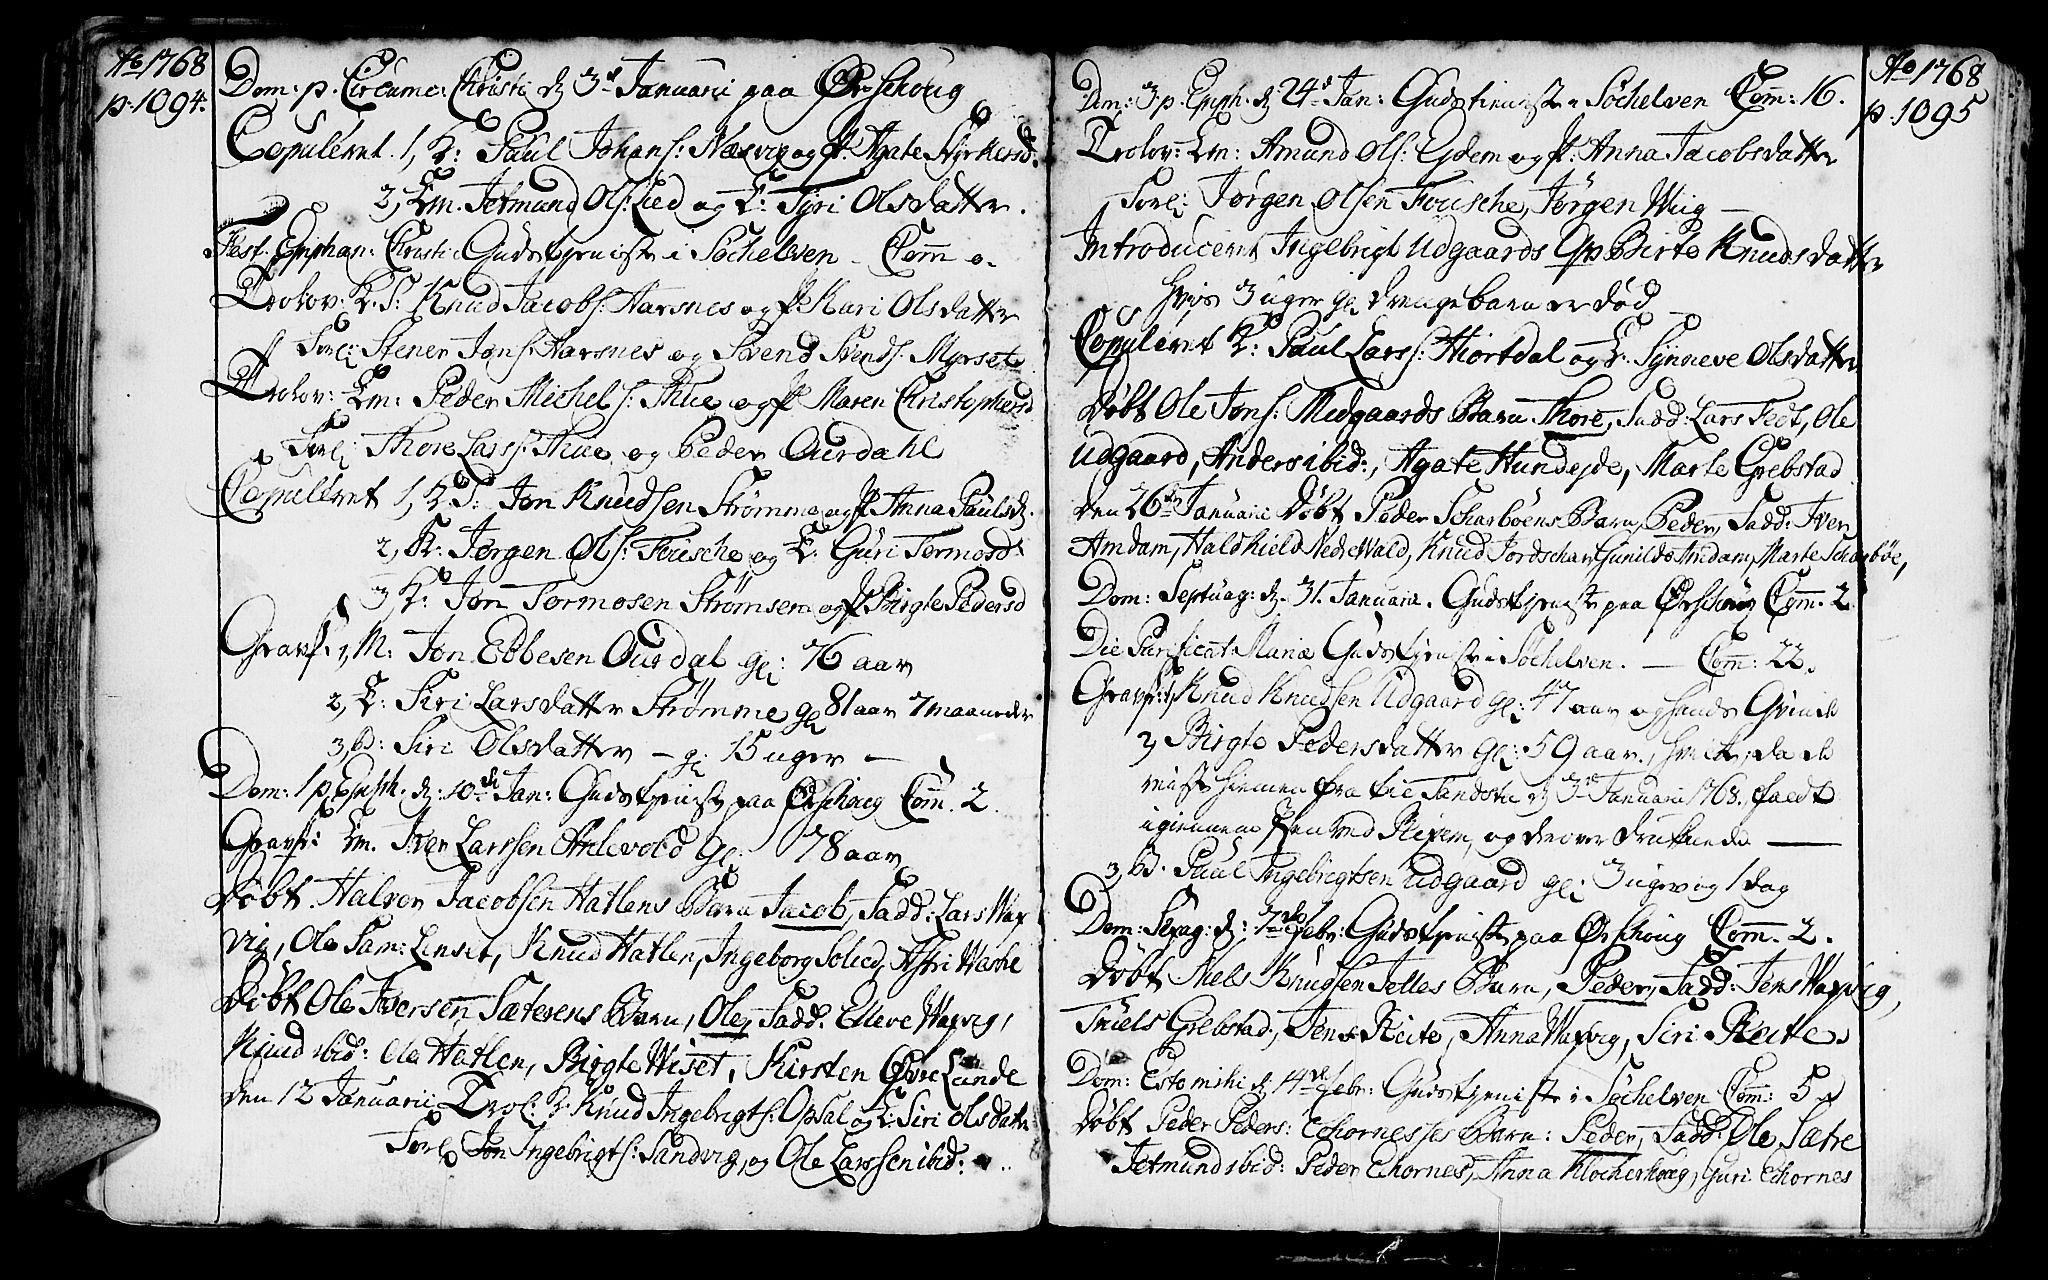 Ao 1768
p. 1094.
Dom: p. Circumc: Christi d. 3die Januarii paa Ørschoug
Copuleret. 1, K: Paul Johans: Næsvig og P: Agate Styrkersd:
2, Em. Jetmund Ols: Lied og E: Syri Olsdatter.
Fest. Epiphan: Christi Gudstjeniste i Søchelven - Com̄ 0.
Trolov: K. S: Knud Jacobs: Aarsnes og P: Kari Olsdatter
Forl: Stener Jons: Aarsnes og Svend Svends: Myrset
Trolov: Em: Peder Michels: Thue og P: Maren Christophersd
Forl: Thore Larss: Thue og Peder Ourdahl
Copulleret 1, K. S: Jon Knudsen Strømme og P: Anna Paulsd.
2, K: Jørgen Ols: Fousche og E: Guri Tormosd:
3 K: Jon Tormosen Strømsem og P: Birgte Pedersd
Gravf: 1, M: Jon Ebbesen Ourdal gl: 76 aar
2, E: Siri Larsdatter Strømme gl: 81 aar 7 maaneder
3, B: Siri Olsdatter - gl: 15 uger -
Dom: 1 p. Epiph. d: 10de Jan: Gudstjenist paa Ørschoug Com̄. 2.
Gravf: Em. Iver Larssen Anlevold gl: 78 aar
Døbt. Halvor Jacobsen Hatlens Barn Jacob, Fadd: Lars Wax
vig, Ole Sam: Linset, Knud Hatlen, Ingeborg Solied, Astri Wasche
Døbt Ole Iversen, Sæterens Barn, Ole, Fadd. Elleve Waxvig,
Knud ibid: Ole Hatlen, Birgte Wiset, Kirsten Øvre Lande
den 12 Januarii Trol: K. Knud Ingebrigts: Opsal og E: Siri Olsdatter
Forl: Jon Ingebrigts: Sandvig, og Ole Larssen ibid:
Ao 1768
p. 1095
Dom: 3 p. Epiph. d. 24de Jan: Gudstieniste i Søchelven Com̄: 16.
Trolov: Em: Amund Ols: Gdem og P: Anna Jacobsdatter
Forl: Jørgen Olsen Fousche, Jørgen Wiig -
Introduceret Ingebrigt Udgaards Qv. Birte Knudsdatter
hvis 3 uger gl. drengebarn er død
Copuleret K: Paul Larss: Hiortdal og E. Synneve Olsdatter
Døbt Ole Jons: Medgaards Barn Thore, Fadd: Lars Fedt, Ole
Udgaard, Anders ibid:, Agate Hundejde, Marte Grebstad
den 26de Januarii Døbt Peder Scharbøens Barn, Peder, Fadd: Iver
Amdam, Haldkield Nedre Wald, Knud Jordschar, Gunild Amdam, Marte Scharbøe,
Dom: Septuag: d. 31. Januarii. Gudstjenist paa Ørschoug Com̄. 2.
Die Purificat: Mariæ Gudstjenist i Søchelven. - Com̄: 22.
Gravf: 1, Knud Knudsen Udgaard gl: 47 aar og hands Qvinde
2, Birgte Pedersdatter gl: 59 aar, hvilke, da de
reiste hiemen fra til Sandste d. 3de Januarii 1768, faldt
igiennem Isen ved Reiten, og derover druknede -
3, B. Paul Ingebrigtsen Udgaard gl: 3 uger og 1 dag
Dom: Sexag: d: 7de Febr: Gudstjenist paa Ørschoug Com̄. 2.
Døbt Niels Knudsen Telles Barn, Peder, Fadd: Jens Waxvig,
Truels Grebstad, Jens Reite, Anna Waxvig, Siri Reite.
Dom: Estomihi d. 14de Febr: Gudstjeniste i Søchelven Com̄: 5.
Døbt Peder Peders: Echornesses Barn: Peder, Fadd: Ole Sætre
Jetmund ibid: Peder Echornes, Anna Klocherhoug, Guri Echornes